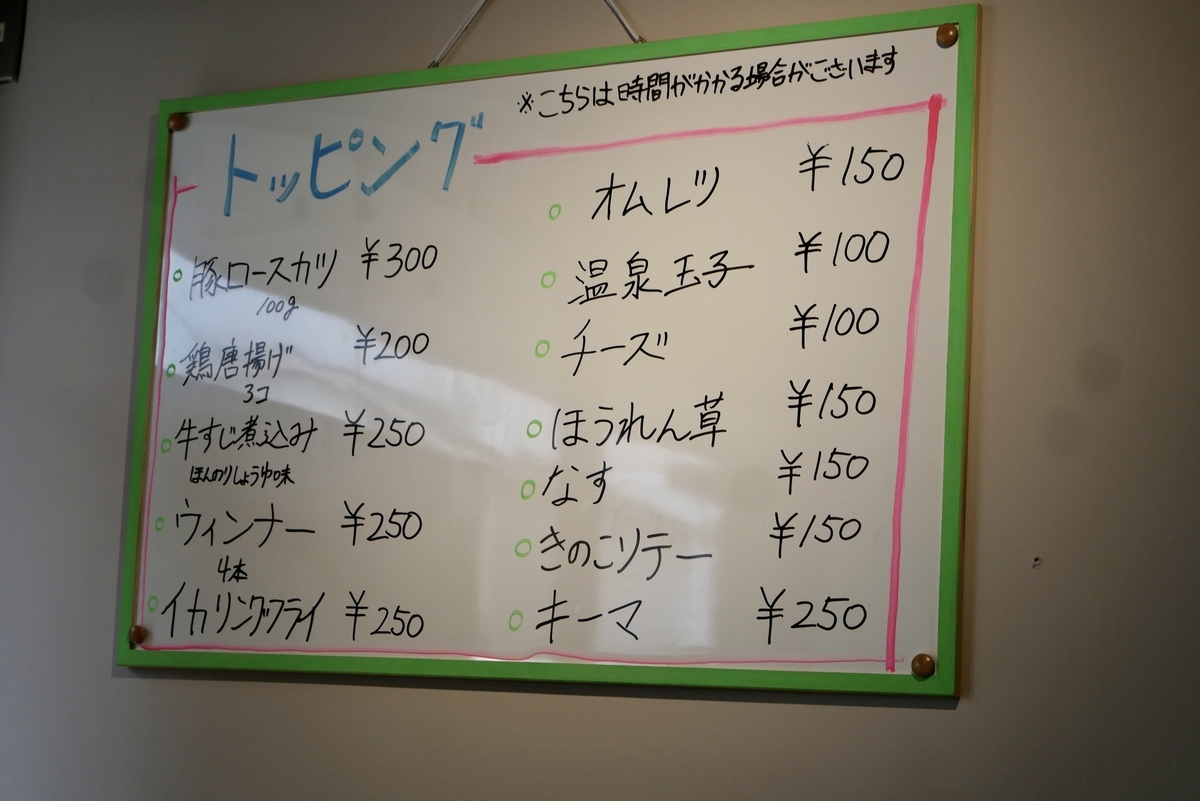 ※こちらは時間がかかる場合がございます
トッピング
豚ロースカツ ¥300
100g
鶏唐揚げ ¥200
3コ
牛すじ煮込み ¥250
ほんのりしょうゆ味
ウィンナー ¥250
4本
イカリングフライ ¥250
オムレツ ¥150
温泉玉子 ¥100
チーズ ¥100
ほうれん草 ¥150
なす ¥150
きのこソテー ¥150
キーマ ¥250